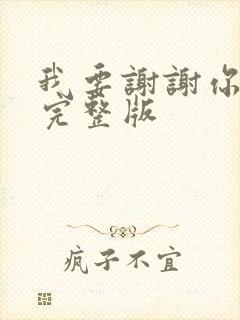 我要謝謝你
完整版
疯子不宜